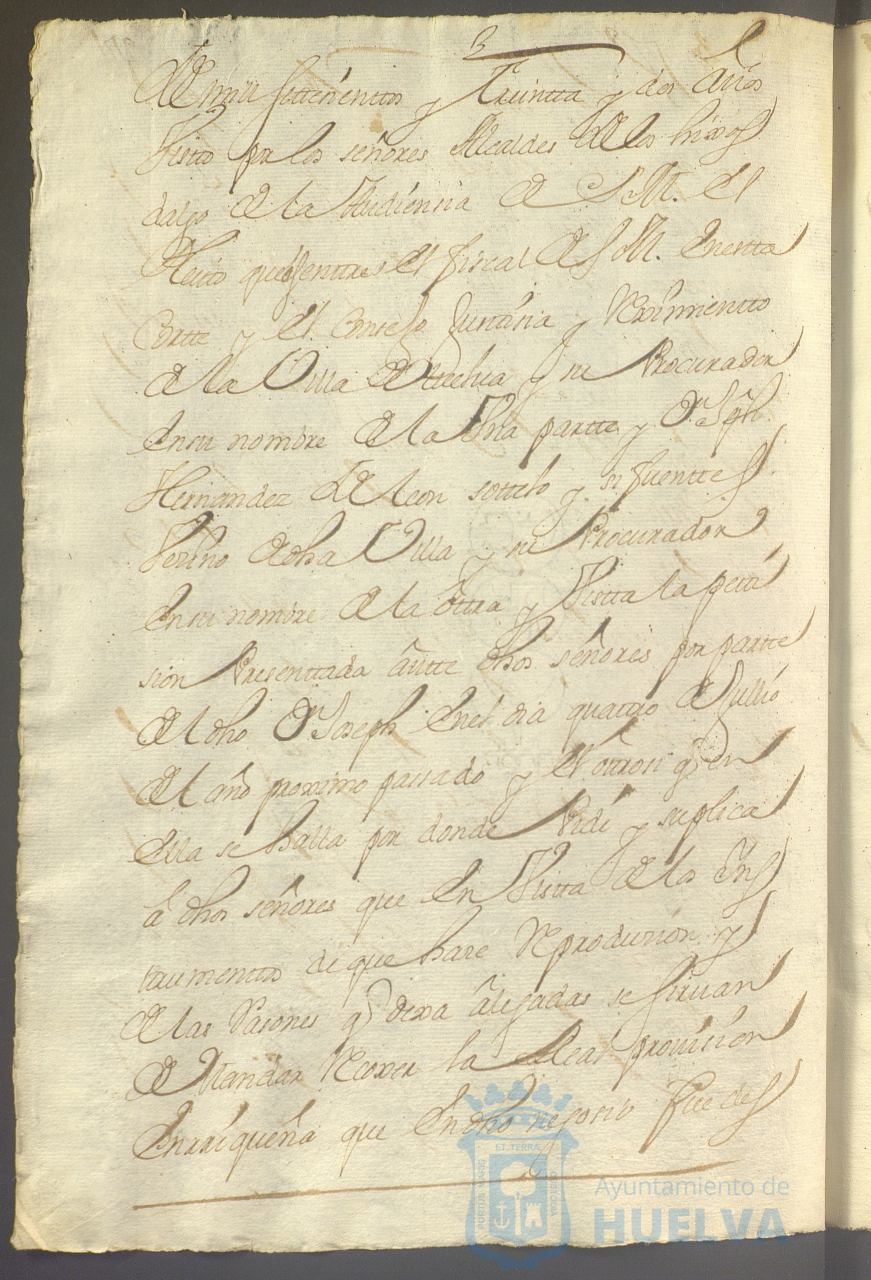 de mill settecienttos y Treintta y dos años
Vistto por los señores Alcaldes de los hixos
dalgo de la Audiencia de S. M. el
Pleito que es entre el fiscal de S. M. en estta
Cortte y el Consejo Justticia y Reximientto
de la Villa de Huelva y su Procurador
en su nombre de la Una partte y Dn. Joseph
Hernandez de leon sottelo y sifuenttes
Vezino de dha Villa y su Procurador
en su nombre de la ottra y Vistta la peti
sion Presenttada antte dhos señores por partte
del dho Dn. Joseph en el dia quattro de Jullio
del año proximo passado y el ottrosi q. en
ella se halla por donde Pide y suplica
a dhos señores que en Vistta de los Ins
trumenttos de que hase Reprodusion y
de las Rasones q. dexa alegadas se sirvan
de Mandar Recoxer la Real provision
Enrriqueña que en dho negosio fue des
ET TERRAE
PORTUS MARIS
CUSTODIA
Ayuntamiento de
HUELVA